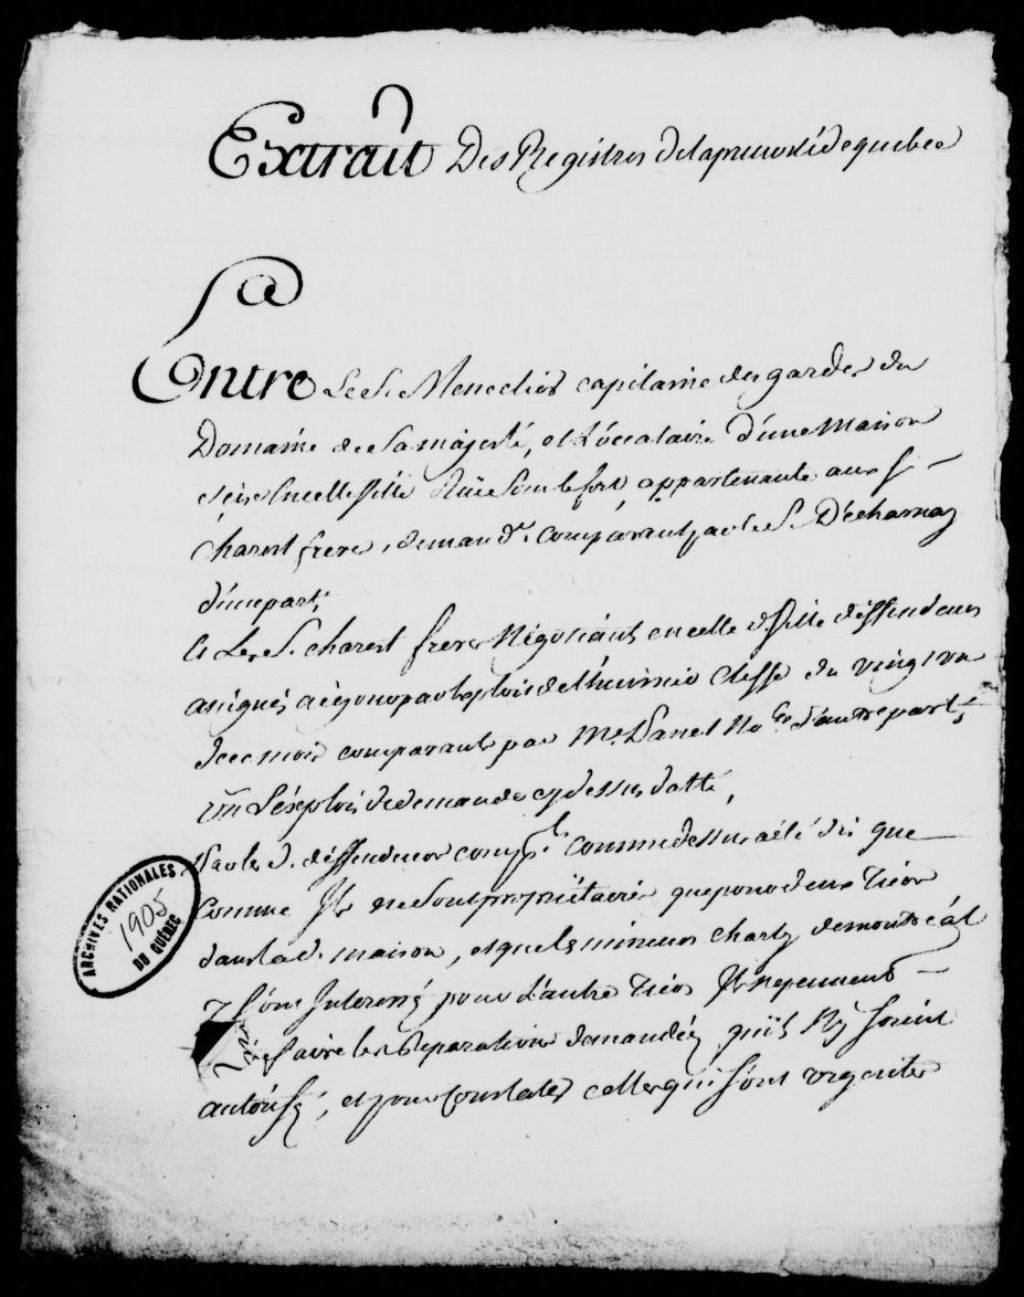 Extrait Des Registres dela prevosté de quebec
Entre Le Sr. Meneclier capitaine des gardes du
Domaine de sa majesté, et Locataire d'une Maison
size En cette ville Rüe Sous le fort, appartenante aux Srs
Charest freres, demandr. comparant par le Sr. Décharnay
d'une part;
Et Les Srs. charest freres Négotiants en cette ditte Ville déffendeurs
assignés à ce jour par exploit de l'huissier Clesse du vingt un
de ce mois comparant par Me. Panet Nore. d'autre part;
Vu L'éxploit de demande cy dessus datté,
Par les d. déffendeurs compt. comme dessus a été dit que
Comme Ils ne sont propriétaires que pour deux Tiers
dans la de. maison, et que les mineurs Charly de montréal
y sont Interessés pour L'autre Tiers Ils ne peuvent
faire les Réparations demandées qu'ils N'y soient
autorisés, et pour Constater celles qui sont urgentes
ARCHIVES NATIONALES
1905
DU QUÉBEC